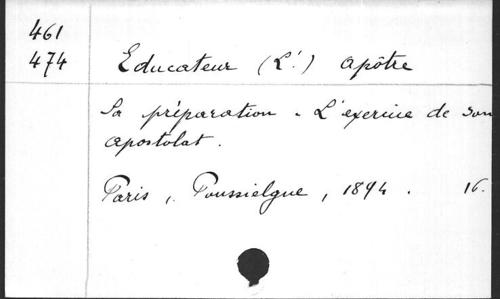 461
474
Educateur (L') apôtre
Sa préparation - L'exercice de son
apostolat.
Paris, Poussielgue, 1894. 16.